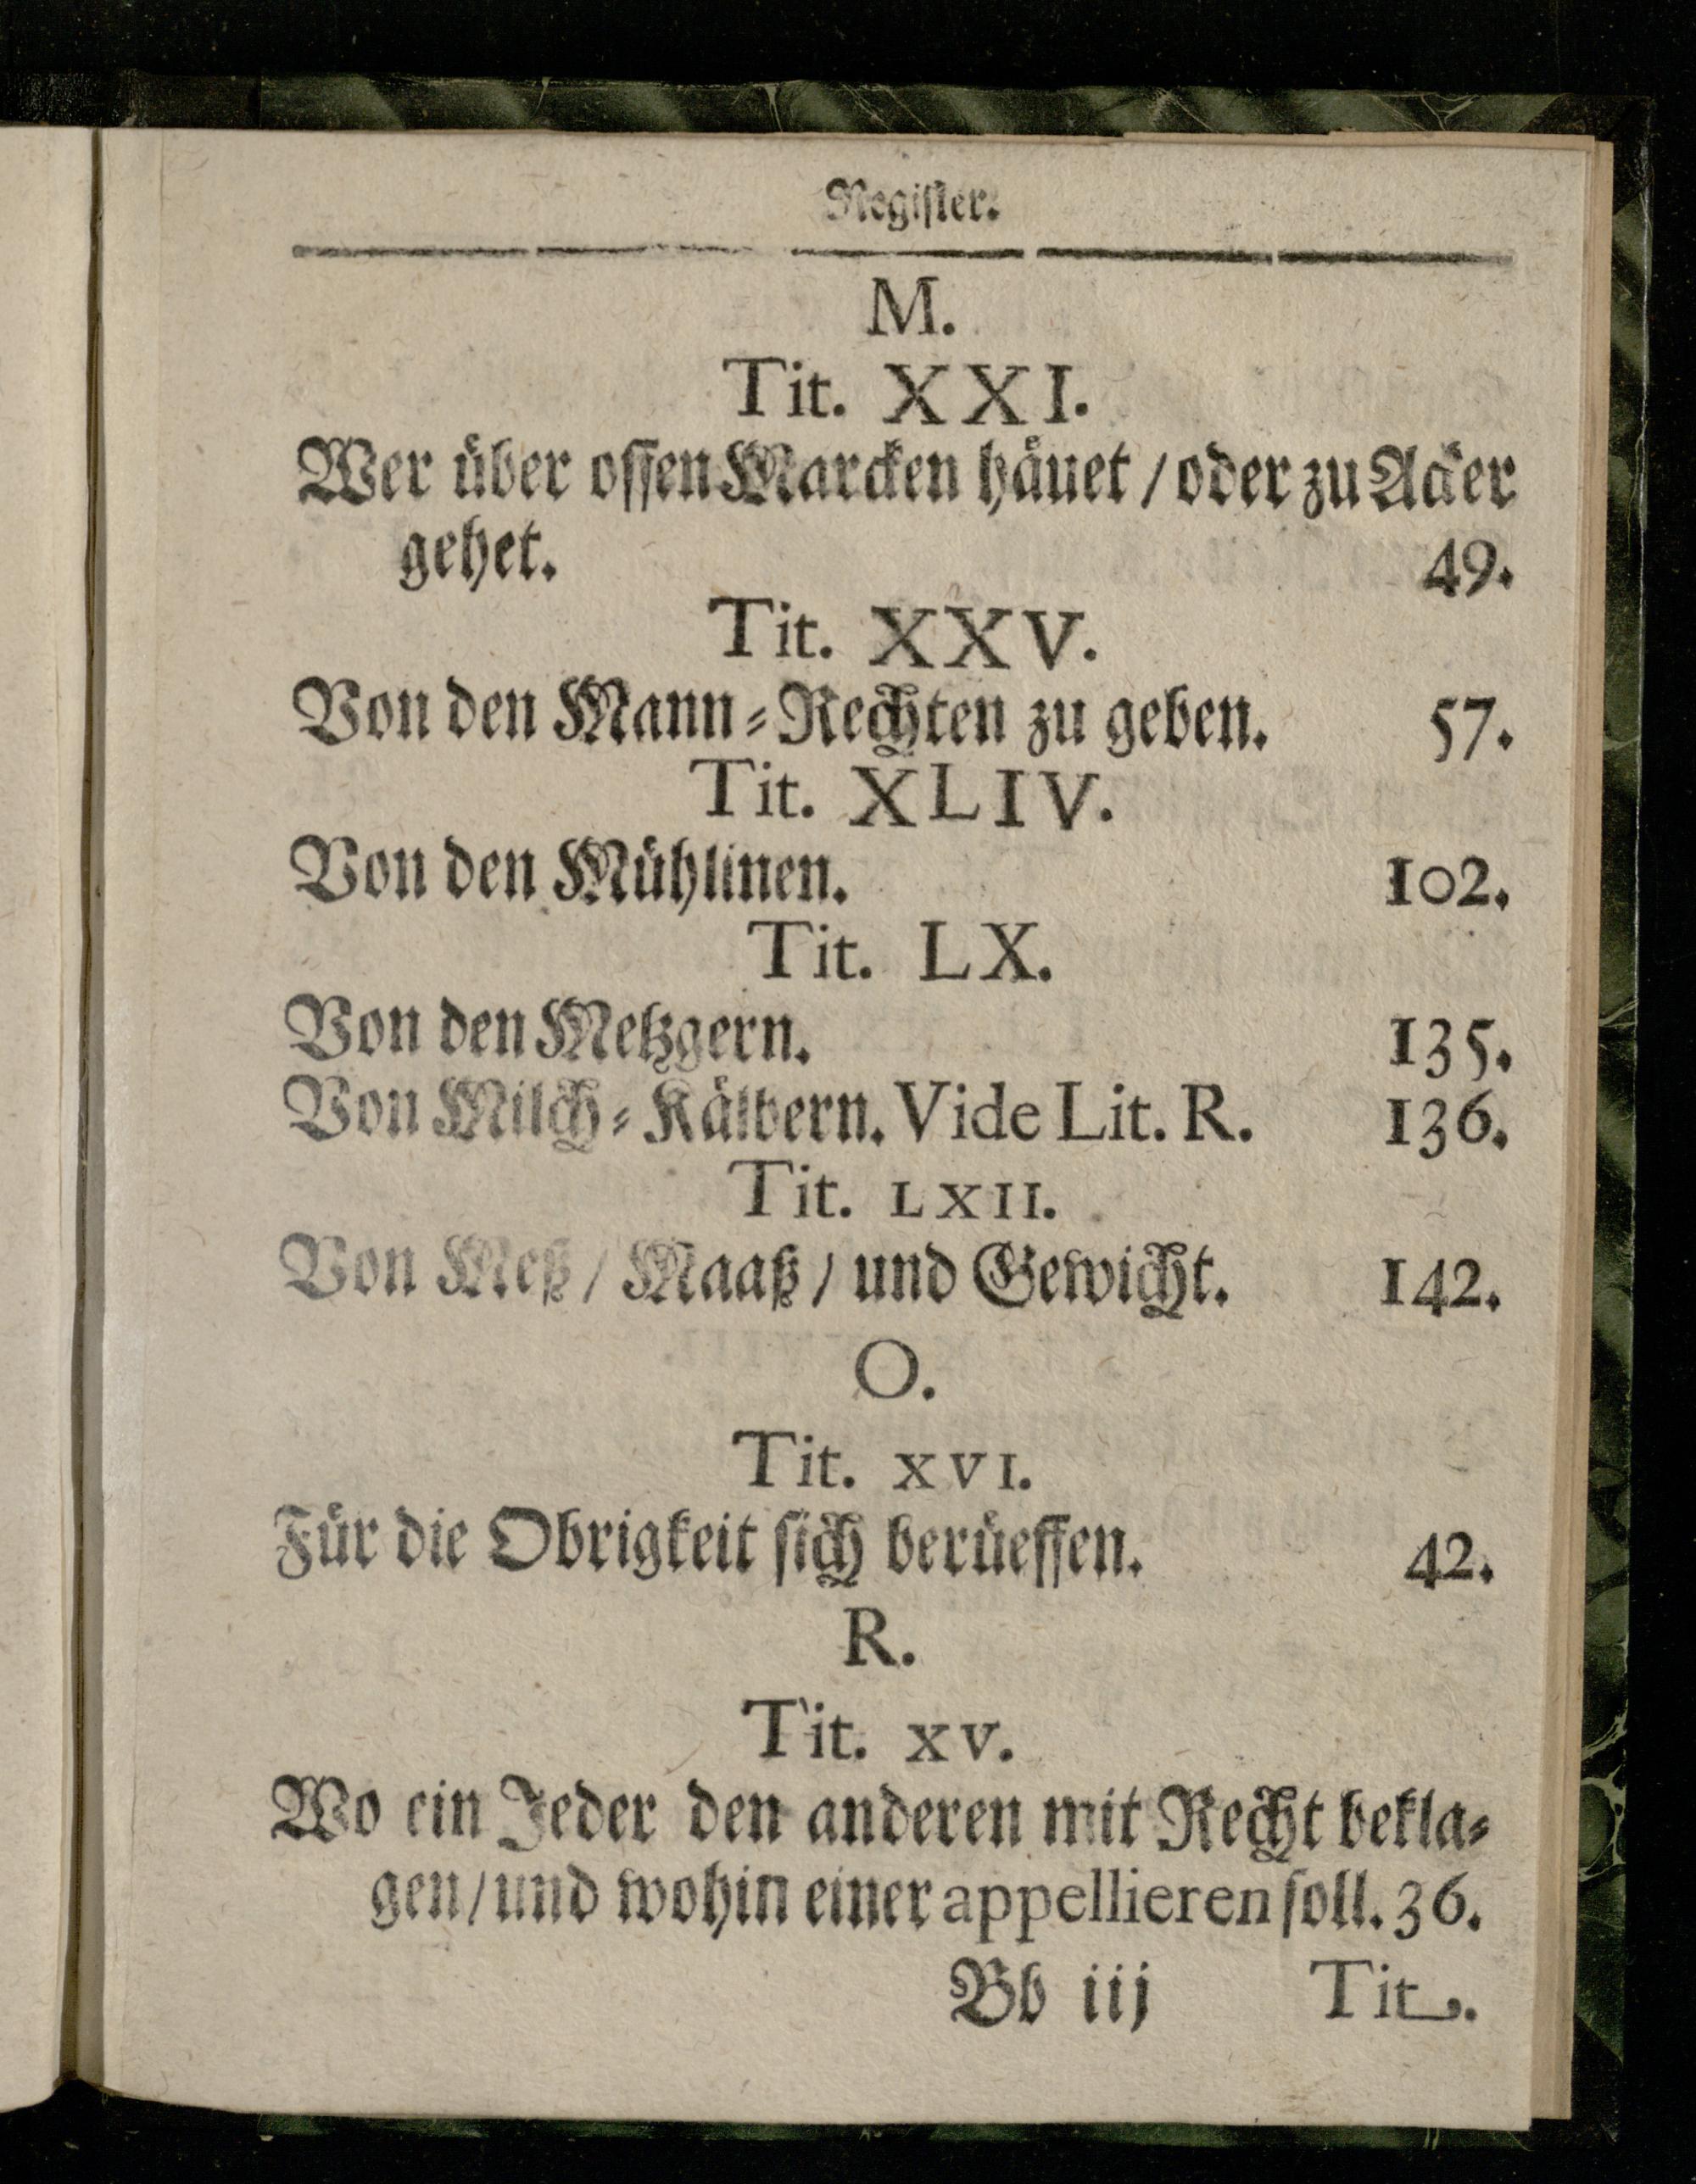 Register.
M.
Tit. XXI.
Wer über offen Marcken häuet / oder zu Acker
gehet. 49.
Tit. XXV.
Von den Mann-Rechten zu geben. 57.
Tit. XLIV.
Von den Mühlinen. 102.
Tit. LX.
Von den Metzgern. 135.
Von Milch-Kälbern. Vide Lit. R. 136.
Tit. LXII.
Von Meß / Maaß / und Gewicht. 142.
O.
Tit. XVI.
Für die Obrigkeit sich berüeffen. 42.
R.
Tit. XV.
Wo ein Jeder den anderen mit Recht bekla-
gen / und wohin einer appellieren soll. 36.
Bb iij Tit.